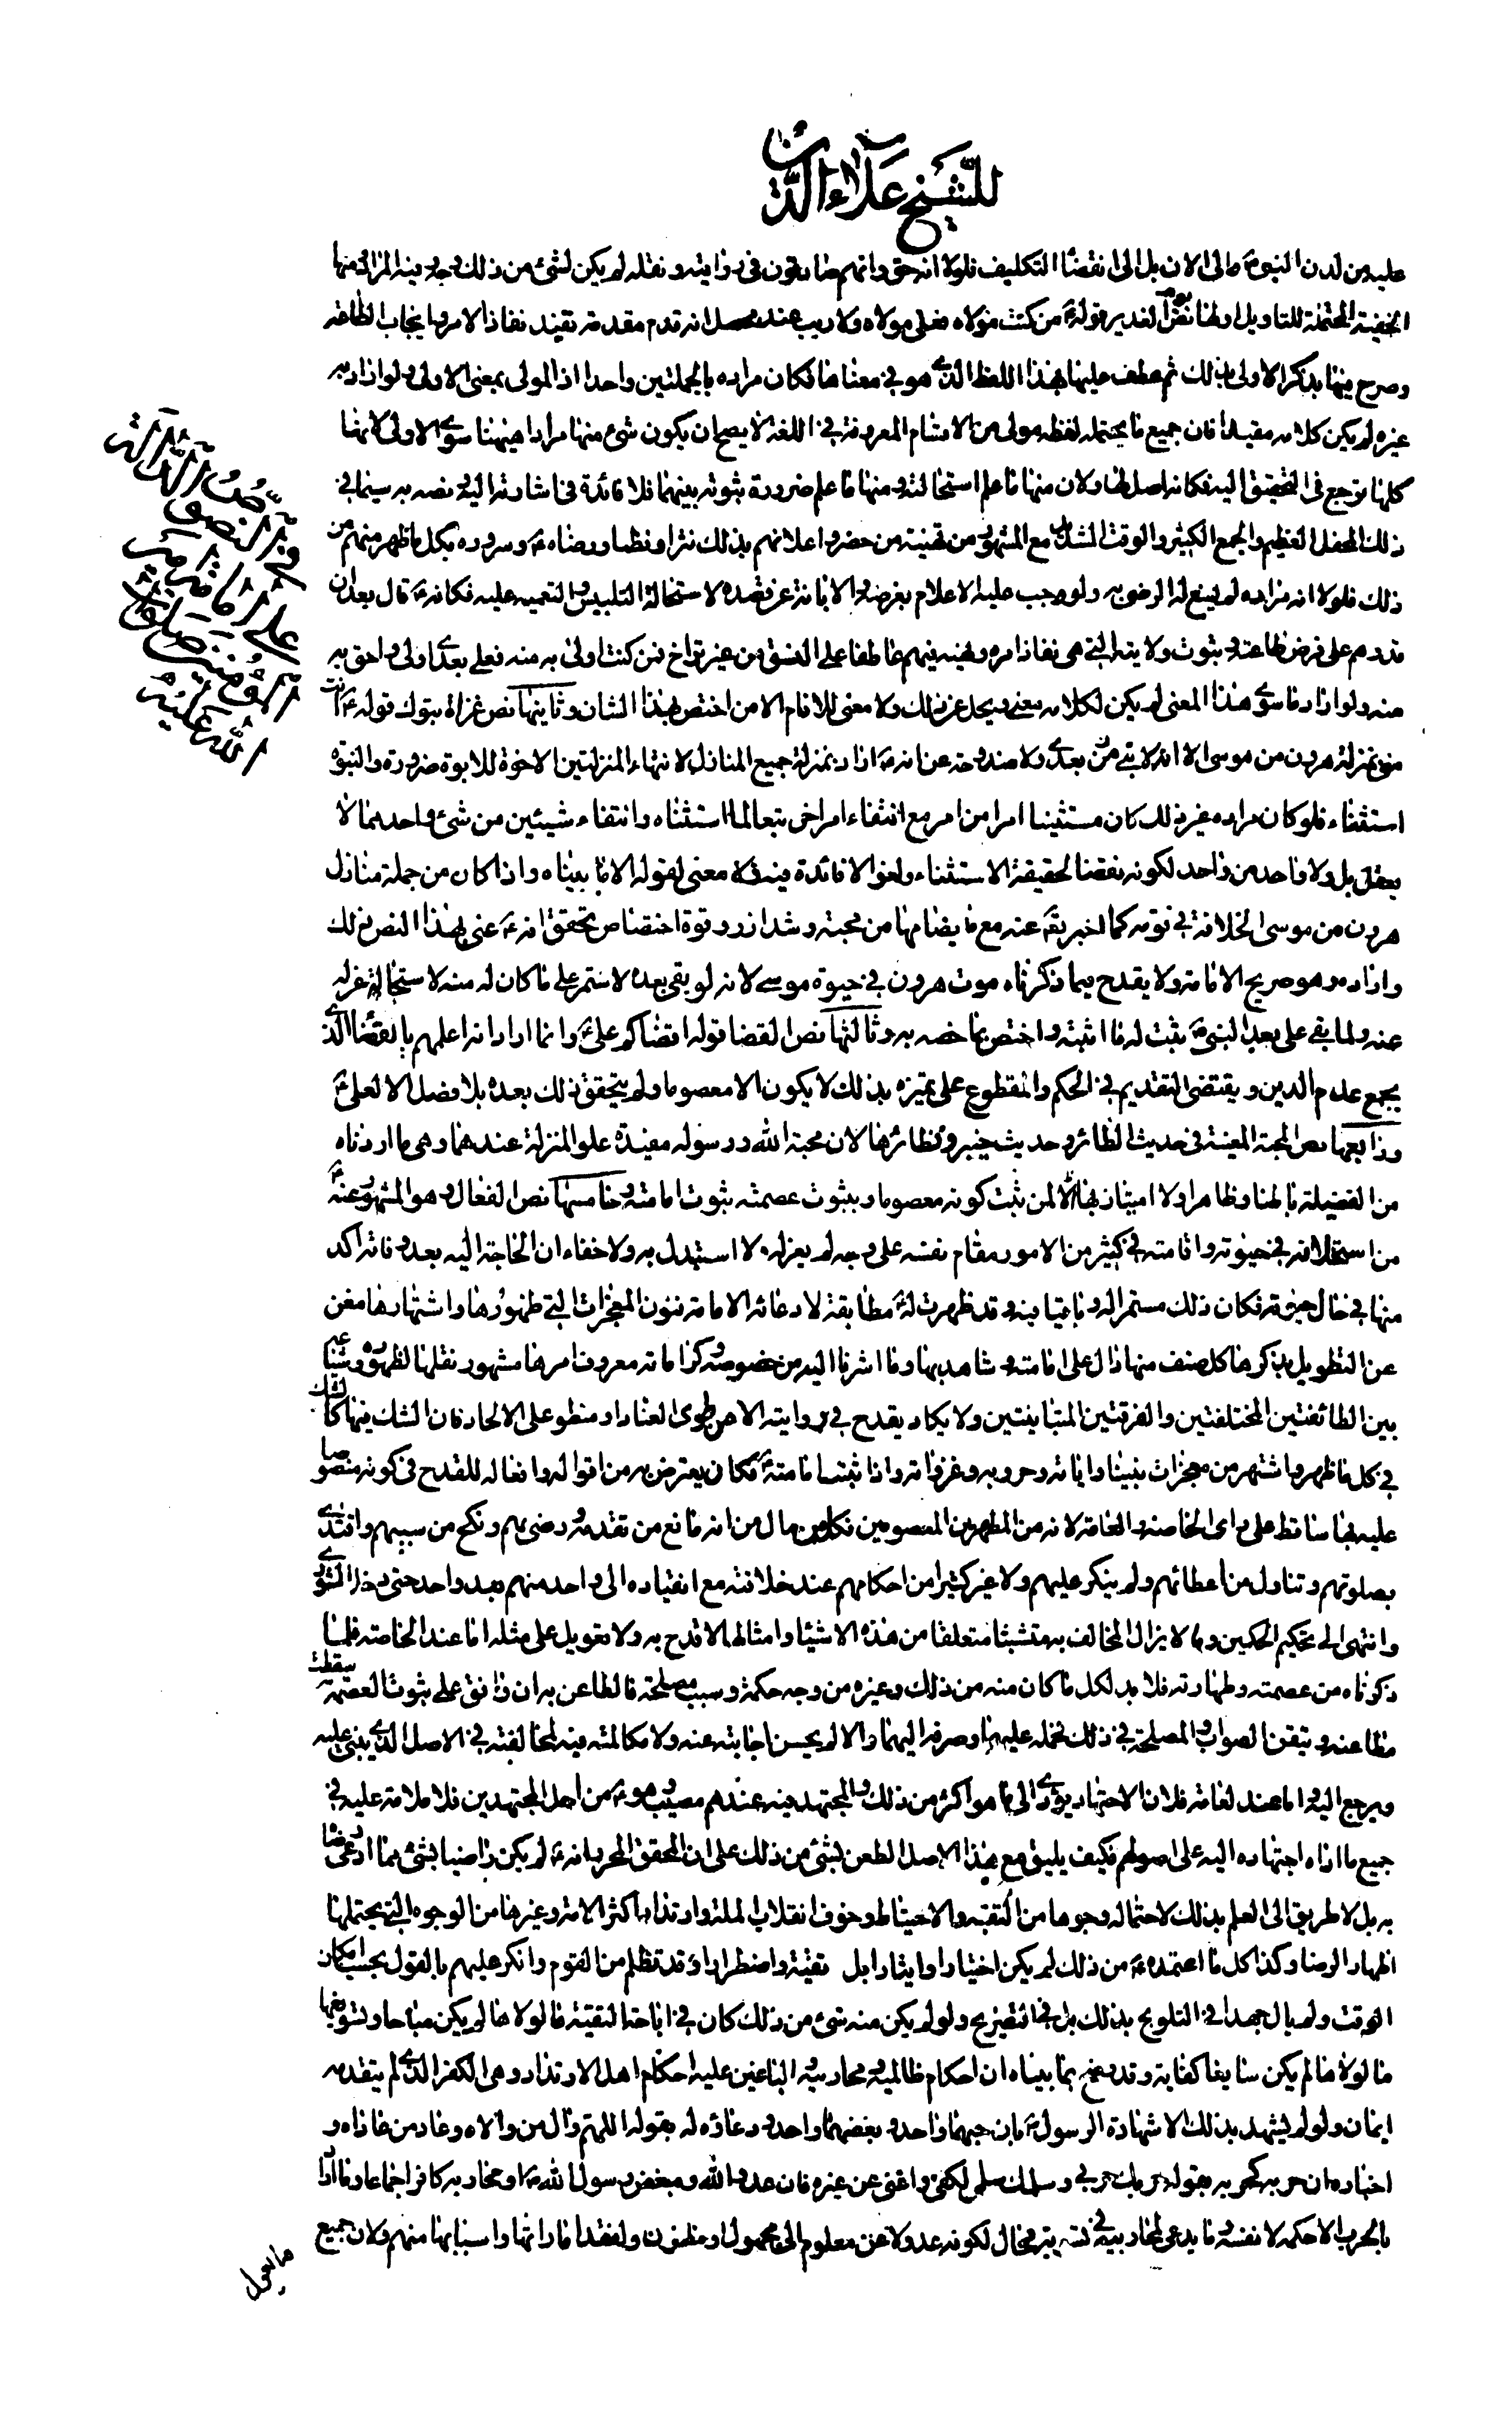 للشيخ علاء الدين
عليه من لدن النبي م والى الان بل الى انقضا التكليف فلولا انه حق وانهم صادقون في روايته ونقله لم يكن لشئ من ذلك وجه وبينه المراد منها
الخفية المحتملة للتاويل اولها نص يوم الغدير قوله ع من كنت مولاه فعلي مولاه ولا ريب عند محصل انه قدم مقدمة تفيد نفاذ الامر وايجاب الطاعة
وصرح فيها بذكر الاولى بذلك ثم عطف عليها بهذا اللفظ الذي هو في معناها فكان مراده بالجملتين واحدا اذ المولى بمعنى الاولى ولو اراد به
غيره لم يكن كلامه مفيدا فان جميع ما يحتمله لفظه مولى من الاقسام المعروفة في اللغة لا يصح ان يكون شئ منها مرادا هيهنا سوى الاولى لانها
كلها ترجع في التحقيق اليه فكانه اصل لها ولان منها ما علم استحالته ومنها ما علم ضرورة ثبوته بينهما فلا فائدة في اشارته اليه ونصه به سيما في
ذلك المحفل العظيم والجمع الكثير والوقت مع المشهور من تهنية من حضر واعلانهم بذلك نثرا ونظما ورضاه ع وسروره بكل ما ظهر منهم من
ذلك فلولا انه مراده لم يسغ له الرضى به ولوجب عليه الاعلام بغرضه والابانة عن قصده لاستحالة التلبيس والتعمية عليه فكانه ع قال بعد ان
قررهم على فرض طاعته وثبوت ولايته التي هي نفاذ امره ونهيه فيهم عاطفا على النسق من غير تراخ فمن كنت اولى به منه فعلي بعدي اولى واحق به
منه ولو اراد ما سوى هذا المعنى لم يكن لكلامه معنى ويجل عن ذلك ولا معنى للامام الا من اختص بهذا الشان وثانيها نص غزاة تبوك قوله ع انت
مني بمنزلة هرون من موسى الا انه لا نبي من بعدي ولا مندوحة عن انه ع اراد بمنزلة جميع المنازل لانتهاء المنزلتين الاخوة للابوة ضرورة والنبوة
استثناء فلو كان مراده غير ذلك كان مستثنيا امرا من امر مع انتفاء امر اخر تبعا لما استثناه وانتفاء شيئين من شئ واحد مما لا
يعقل بل ولا واحد من واحد لكونه نقضا لحقيقة الاستثناء ولغوا لا فائدة فيه فلا معنى لقوله الا ما بيناه واذا كان من جملة منازل
هرون من موسى الخلافة في قومه كما اخبر تع عنه مع ما يضامها من محبته وشد ازر وقوة اختصاص تحقق انه ع عنى بهذا النص ذلك
واراده وهو صريح الامامة ولا يقدح فيما ذكرناه موت هرون في حيوة موسى لانه لو بقي بعده لاستمر على ما كان له منه لاستحالة عزله
عنه ولما بقي علي بعد النبي ع ثبت له ما اثبته واختص بما خصه به وثالثها نص القضا قوله اقضاكم علي ع وانما اراد انه اعلمهم بالقضا الذي
يجمع علوم الدين ويقتضي التقديم في الحكم والمقطوع على تميزه بذلك لا يكون الا معصوما ولم يتحقق ذلك بعده بلا فصل الا لعلي ع
ورابعها نص المحبة المعينة في حديث الطائر وحديث خيبر ونظائرها لان محبة الله ورسوله مفيدة علو المنزلة عندهما وهي ما اردناه
من الفضيلة باطنا وظاهرا ولا امتياز بها الا لمن ثبت كونه معصوما وبثبوت عصمته ثبوت امامته وخامسها نص الفعال وهو المشهور عنه ع
من استخلافه في حيوته واقامته في كثير من الامور مقام نفسه على وجه لم يعزله ولا استبدل به ولا خفاء ان الحاجة اليه بعد وفاته اكد
منها في حال حيوته فكان ذلك مستمرا له وباقيا فيه وقد ظهرت له ع مطابقة لادعائه الامامة فنون المعجزات التي ظهورها واشتهارها مغن
عن التطويل بذكرها كل صنف منها دال على امامته وشاهد بها وما اشرنا اليه من خصوصيته وكراماته معروف امرها مشهور نقلها لظهوره وشياعه
بين الطائفتين المختلفتين والفرقتين المتباينتين ولا يكاد يقدح في روايته الا من طوى العناد او منطو على الالحاد فان الشك فيها كالشك
في كل ما ظهر واشتهر من معجزات نبينا واياته وحروبه وغزواته واذا ثبتت امامته ع فكل ما يعترض به من اقواله وافعاله للقدح في كونه منصوصا
عليه بها ساقط على راى الخاصة والعامة لانه من المطهرين المعصومين فكل من مال من انه مانع من تقدمه ورضى بهم ونكح من سبيهم واقتدى
بصلوتهم وتناول من اعطائهم ولم ينكر عليهم ولا غير كثيرا من احكامهم عند خلافته مع انقياده الى واحد منهم بعد واحد حتى الشورى
وانتهى الى تحكيم الحكمين وما لا يزال المخالف به متشبثا متعلقا من هذه الاشياء وامثالها لا قدح به ولا تعويل على مثله اما عند الخاصة فلما
ذكرناه من عصمته وطهارته فلا بد لكل ما كان منه من ذلك وغيره من وجه حكمة وسبب مصلحة فالطاعن به ان وافق على ثبوت العصمة سقطت
مطاعنه وتيقن الصواب والمصلحة في ذلك بحمله عليهما وصرفه اليهما والا لم يحسن اجابته عنه ولا مكالمته فيه لمخالفته في الاصل الذي ينبني عليه
ويرجع اليه واما عند العامة فلان الاجتهاد يؤدي الى ما هو اكثر من ذلك والمجتهد فيه عندهم مصيب وهو ع من اجل المجتهدين فلا ملامة عليه في
جميع ما اداه اجتهاده اليه على اصولهم فكيف يليق مع هذا الاصل الطعن بشئ من ذلك على ان المحقق المحرر انه ع لم يكن راضيا بشئ مما ادعي رضا
به بل لا طريق الى العلم بذلك لاحتماله وجوها من التقية والاحتياط وخوف انقلاب الملة وارتداد اكثر الامة وغيرها من الوجوه التي يحتملها
اظهار الرضا وكذا كل ما اعتمده ع من ذلك لم يكن اختيارا وايثارا بل تقية واضطرارا وقد تظلم من القوم وانكر عليهم بالقول بحسب امكان
الوقت ولم يال جهدا في التلويح بذلك بل في التصريح ولو لم يكن منه شئ من ذلك كان في اباحة التقية ما لولاها لم يكن مباحا وتسويغها
ما لولاها لم يكن سايغا كفاية وقد وضح بما بيناه ان احكام ظالميه ومحاربيه والباغين عليه احكام اهل الارتداد وهي الكفر الذي لم يتقدمه
ايمان ولو لم يشهد بذلك الا شهادة الرسول ع بان حبهما واحد وبغضهما واحد ودعاؤه له بقوله اللهم وال من والاه وعاد من عاداه و
اخباره ان حربه كحربه بقوله حربك حربي وسلمك سلمي لكفى واغنى عن غيره فان عدو الله ومبغض رسول الله ع ومحاربه كافر اجماعا وما اراد
بالحرب الا حكمه لا نفسه وما يدعى لمحاربيه في توبته محال لكونه عدولا عن معلوم الى مجهول او مظنون ولفقد اماراتها واسبابها منهم ولان جميع
في النصوص الدالة
على امامة امير
المؤمنين صلوات
الله عليه